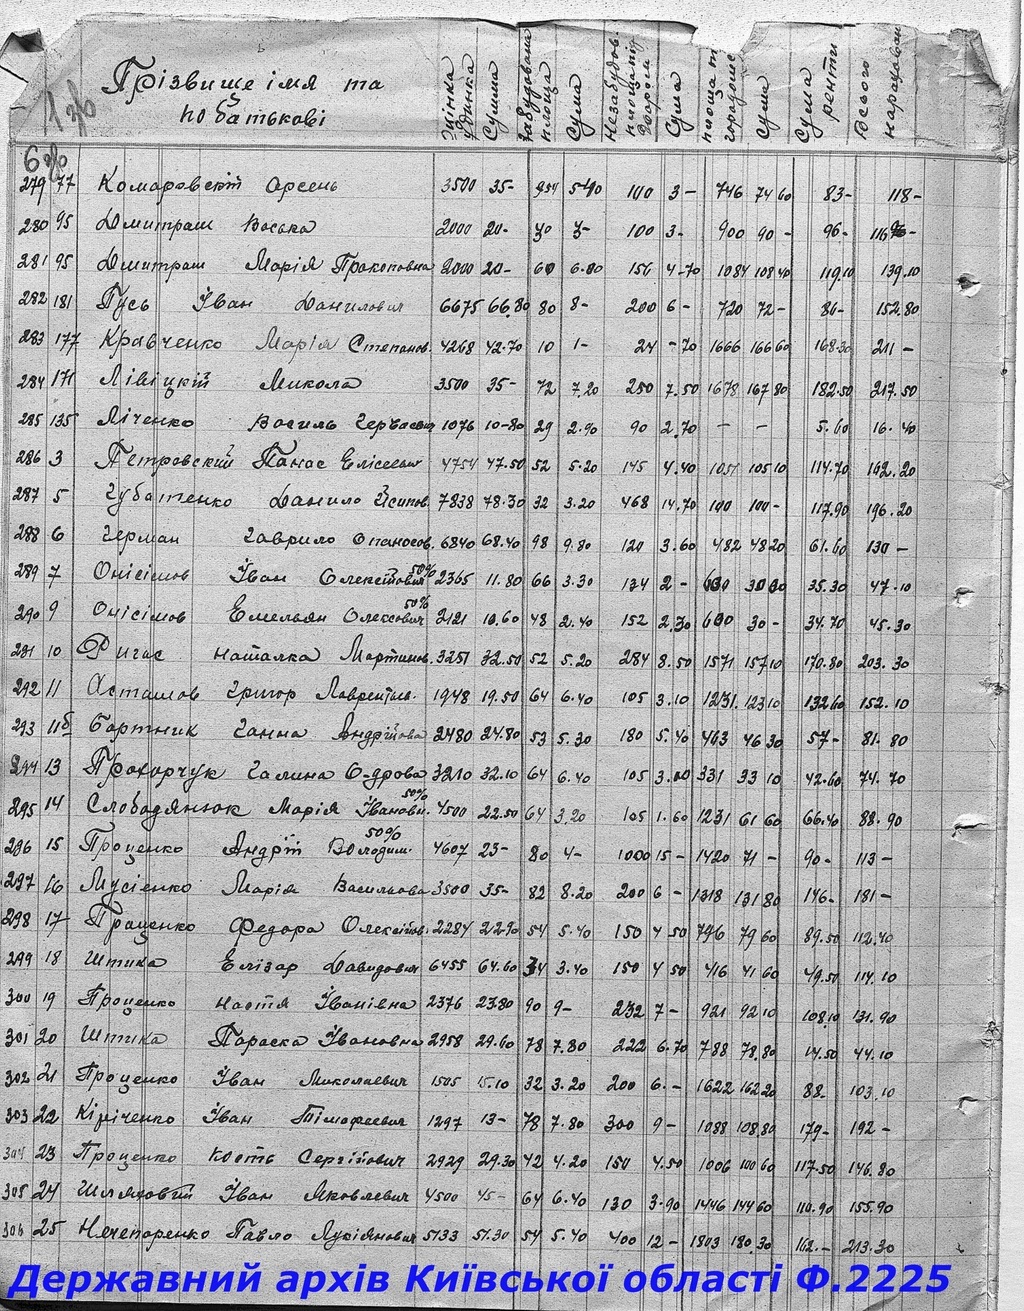 Прізвище імя та
по батькові
Оцінка будинка Сумма Забудована площа Сума Незабудов. площа під двором Сума площа п городом Сума Сума ренти Всього нараховано
6%
279 77 Комаровскій Арсень 3500 35- 954 5-40 100 3- 746 74 60 83- 118-
280 95 Дмитраш Воська 2000 20- 30 3- 100 3- 900 90- 96- 116-
281 95 Дмитраш Марія Прокоповна 2000 20- 60 6.00 156 4-70 1084 108 40 119.10 139.10
282 181 Гусь Іван Данилович 6675 66.80 80 8- 200 6- 720 72- 86- 152.80
283 177 Кравченко Марія Степанов. 4268 42.70 10 1- 24 -70 1666 166 60 168.30 211-
284 171 Лівіцкій Микола 3500 35- 72 7.20 250 7.50 1678 167 80 182.50 217.50
285 135 Ліченко Василь 1076 10-80 29 2.90 90 2.70 - - 5.60 16.40
286 3 Петровский Панас Елісеевич 4754 47.50 52 5.20 145 4.40 1051 105 10 114.70 162.20
287 5 Губатенко Данило Осипов. 7838 78.30 32 3.20 468 14.70 100 100- 117.90 196.20
288 6 Герман Гаврило Опанасов. 6840 68.40 98 9.80 120 3.60 482 48 20 61.60 130-
289 7 Онісімов Іван Олексійович 50% 2365 11.80 66 3.30 134 2- 600 30 00 35.30 47.10
290 9 Онісімов Емельян Олексович 50% 2121 10.60 48 2.40 152 2.30 600 30- 34.70 45.30
291 10 Ригас Наталка Мартинов. 3251 32.50 52 5.20 284 8.50 1571 157 10 170.80 203.30
292 11 Асташов Григор Лаврентіев. 1948 19.50 64 6.40 105 3.10 1231 123 10 132 60 152.10
293 11б Бортник Ганна Андрійова 2480 24.80 53 5.30 180 5.40 463 46 30 57- 81.80
294 13 Прохорчук Галина 3210 32.10 64 6.40 105 3.10 331 33 10 42.60 74.70
295 14 Слободянюк Марія Іванови. 50% 4500 22.50 64 3.20 105 1.60 1231 61 60 66.40 88.90
296 15 Проценко Андрій Володим. 50% 4607 23- 80 4- 1000 15- 1420 71- 90- 113-
297 16 Мусієнко Марія Васильова 3500 35- 82 8.20 200 6- 1318 131 80 146- 181-
298 17 Проценко Федора Олексійов. 2284 22 90 54 5.40 150 4 50 796 79 60 89.50 112.40
299 18 Штика Елізар Давидович 6455 64.60 34 3.40 150 4 50 416 41 60 49.50 114.10
300 19 Проценко Настя Іванівна 2376 23.80 90 9- 232 7- 921 92 10 108.10 131.90
301 20 Штика Параска Івановна 2958 29.60 78 7.80 222 6.70 788 78.80 14.50 44.10
302 21 Проценко Іван Миколаевич 1505 15.10 32 3.20 200 6.- 1622 162 20 88- 103.10
303 22 Кіріченко Іван Тімофеевич 1297 13- 78 7.80 300 9- 1088 108.80 179- 192-
304 23 Проценко Кость Сергійович 2929 29.30 42 4.20 150 4.50 1006 100 60 117.50 146.80
305 24 Шляховий Іван Яковлевич 4500 45- 64 6.40 130 3.90 1446 144 60 110.90 155.90
306 25 Нечепоренко Павло Лукіянович 5133 51.30 54 5.40 400 12- 1803 180.30 162.- 213.30
Державний архів Київської області Ф.2225